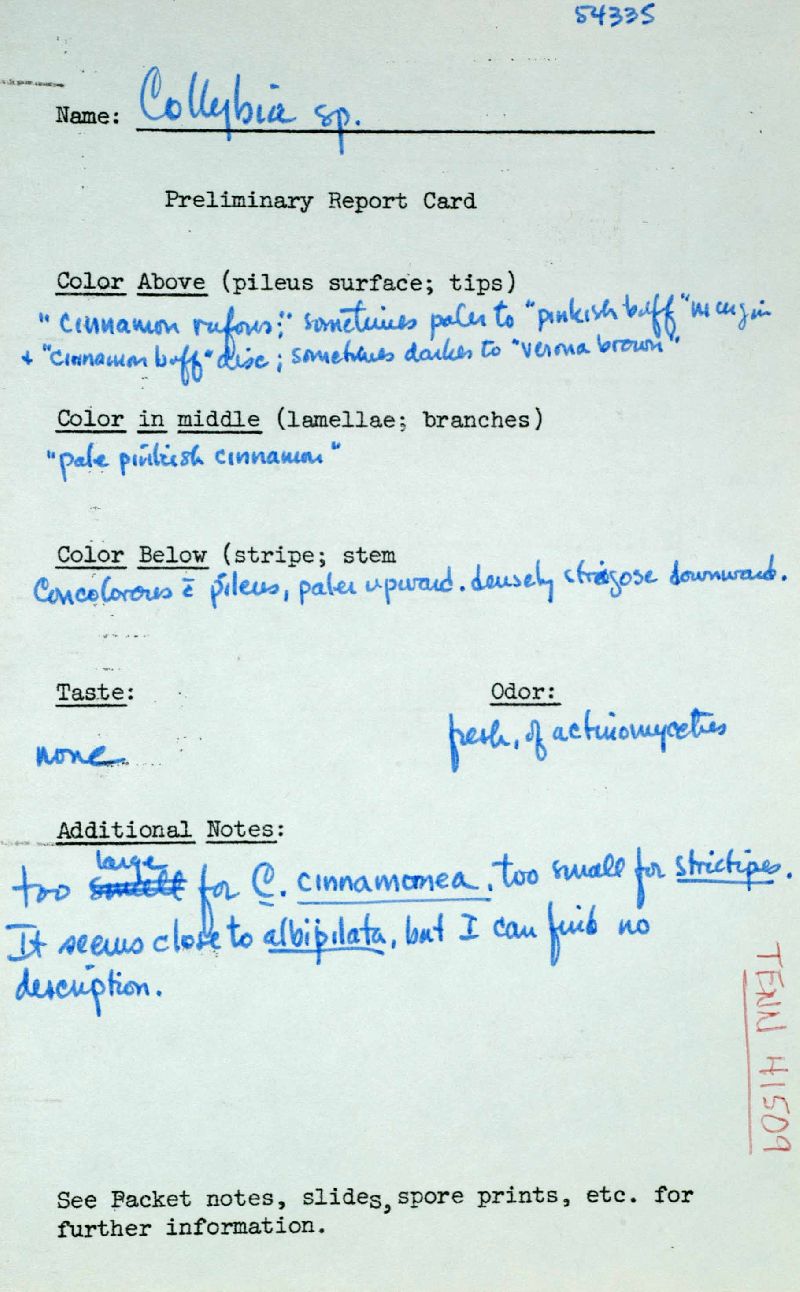 54335
Name: Collybia sp.
Preliminary Report Card
Color Above (pileus surface; tips)
"cinnamon rufous;" sometimes paler to "pinkish buff" margin
+ "cinnamon buff" disc; sometimes darker to "verona brown"
Color in middle (lamellae; branches)
"pale pinkish cinnamon"
Color Below (stripe; stem
Concolorous c̄ pileus, paler upward. densely strigose downward.
Taste: Odor:
none fresh, of actinomycetes
Additional Notes:
large
too small for C. cinnamomea, too small for strictipes.
It seems close to albipilata, but I can find no
description.
TENN 41509
See Packet notes, slides, spore prints, etc. for
further information.